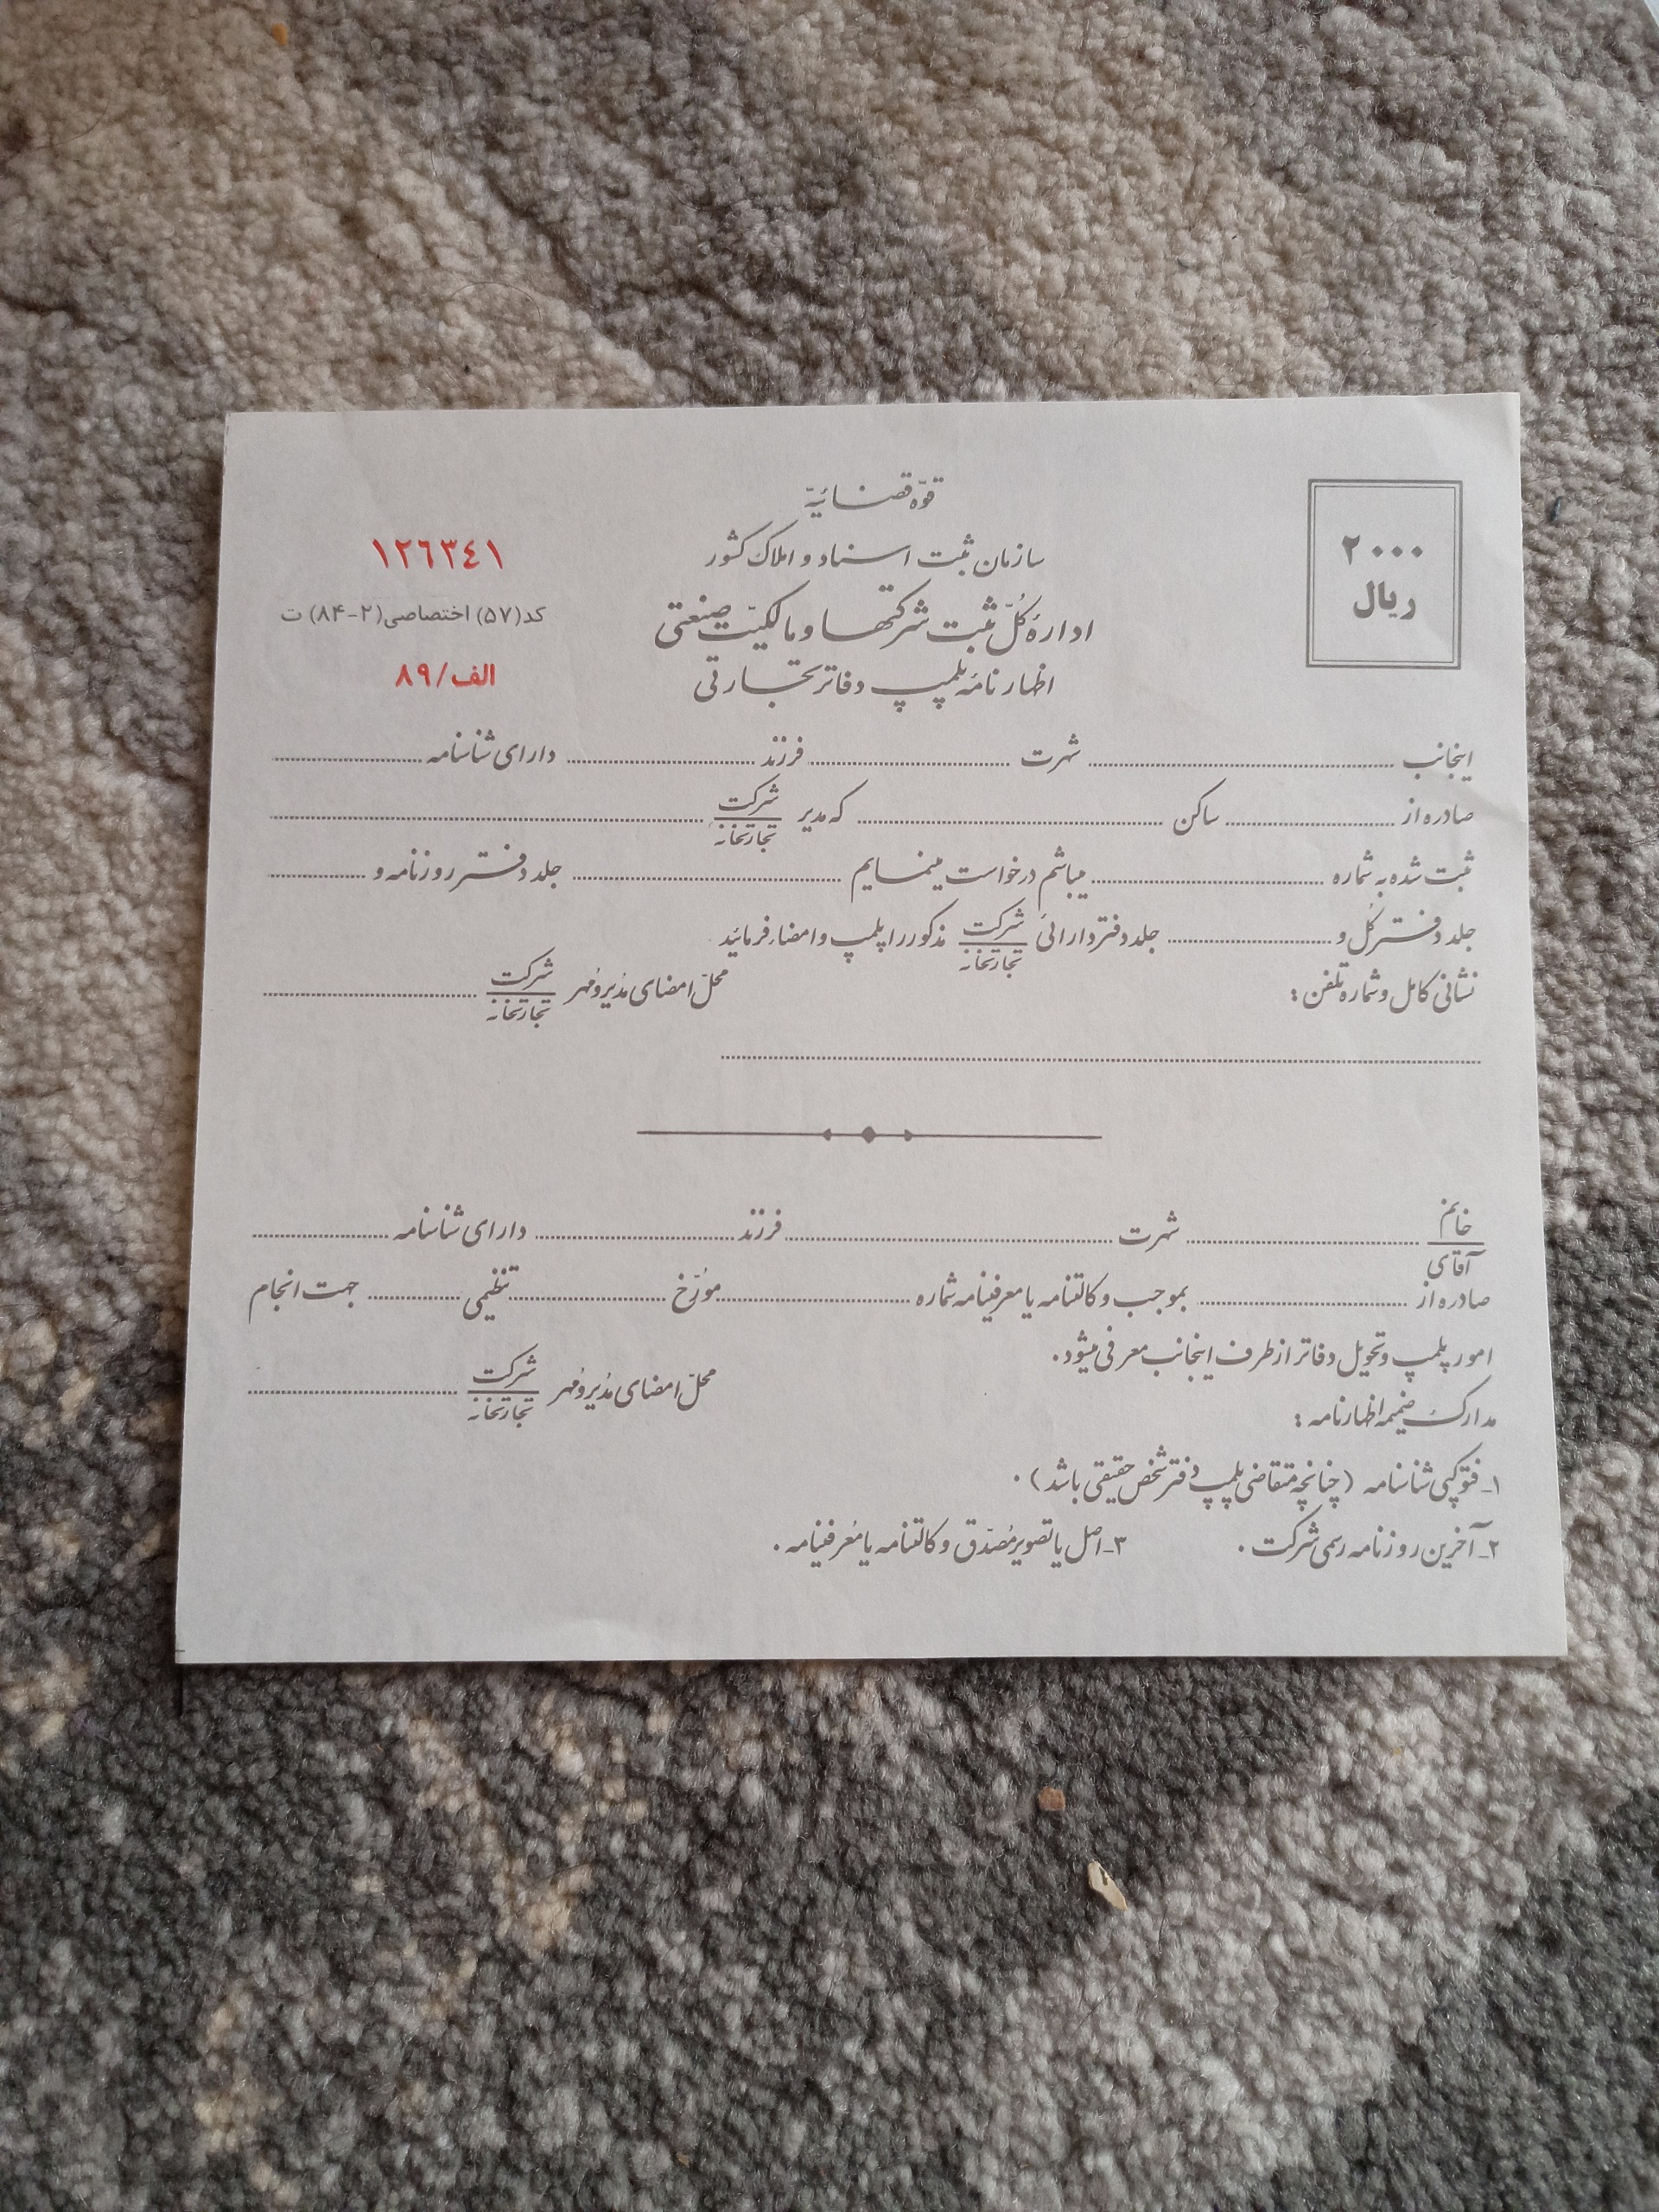 قوّه قضائیّه
سازمان ثبت اسناد و املاک کشور
ادارهٔ کلّ ثبت شرکتها و مالکیّت صنعتی
اظهارنامهٔ پلمپ دفاتر تجارتی
۲۰۰۰
ریال
۱۲٦۳٤۱
کد(۵۷) اختصاصی(۲-۸۴) ت
الف/۸۹
اینجانب ........ شهرت ........ فرزند ........ دارای شناسنامه ........
صادره از ........ ساکن ........ که مدیر شرکت/تجارتخانه ........
ثبت شده به شماره ........ میباشم درخواست مینمایم ........ جلد دفتر روزنامه و ........
جلد دفتر کل و ........ جلد دفتر دارائی شرکت/تجارتخانه مذکور را پلمپ و امضاء فرمائید.
نشانی کامل و شماره تلفن : محلّ امضای مدیر و مُهر شرکت/تجارتخانه ........
خانم/آقای ........ شهرت ........ فرزند ........ دارای شناسنامه ........
صادره از ........ بموجب وکالتنامه یا معرفینامه شماره ........ مورّخ ........ تنظیمی ........ جهت انجام
امور پلمپ و تحویل دفاتر از طرف اینجانب معرفی میشود.
محلّ امضای مدیر و مُهر شرکت/تجارتخانه ........
مدارک ضمیمه اظهارنامه :
۱ـ فتوکپی شناسنامه (چنانچه متقاضی پلمپ دفتر شخص حقیقی باشد) .
۲ـ آخرین روزنامه رسمی شرکت . ۳ـ اصل یا تصویر مُصدّق وکالتنامه یا معرفینامه .